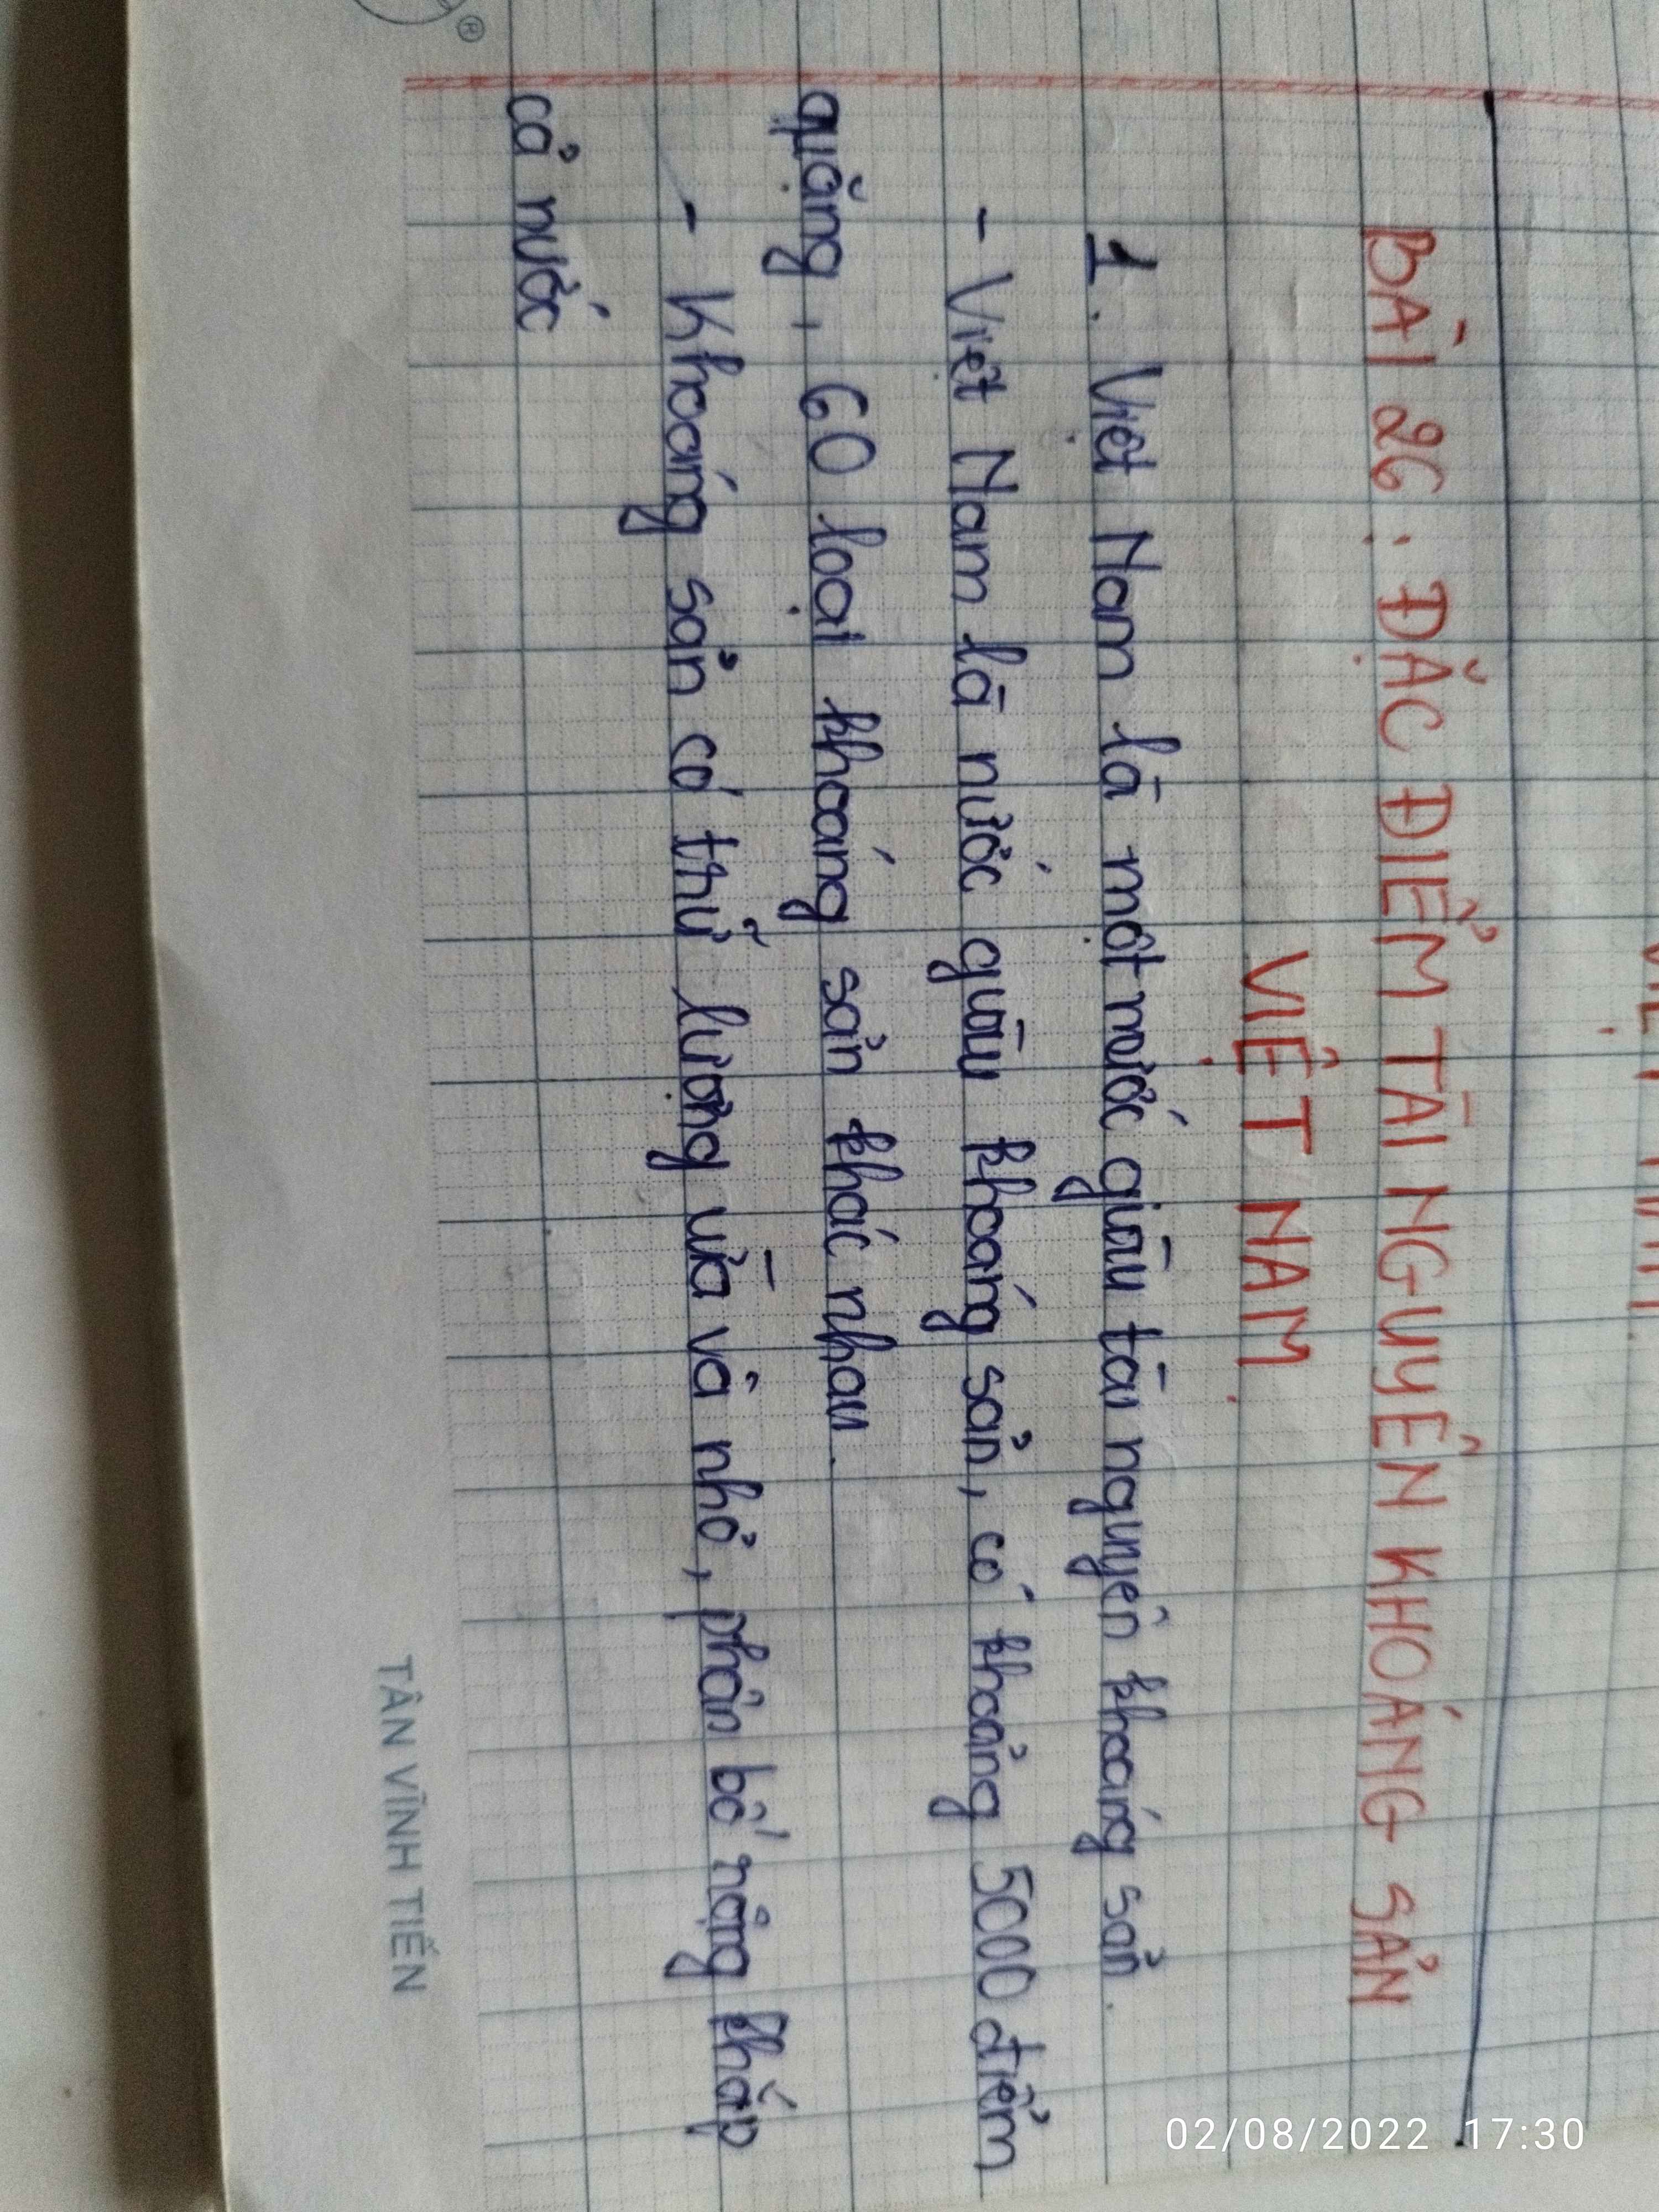 BÀI 26: ĐẶC ĐIỂM TÀI NGUYÊN KHOÁNG SẢN
VIỆT NAM.
1. Việt Nam là một nước giàu tài nguyên khoáng sản.
- Việt Nam là nước giàu khoáng sản, có khoảng 5000 điểm
quặng, 60 loại khoáng sản khác nhau.
- Khoáng sản có trữ lượng vừa và nhỏ, phân bố rộng khắp
cả nước
TÂN VĨNH TIẾN
®
02/08/2022 17:30